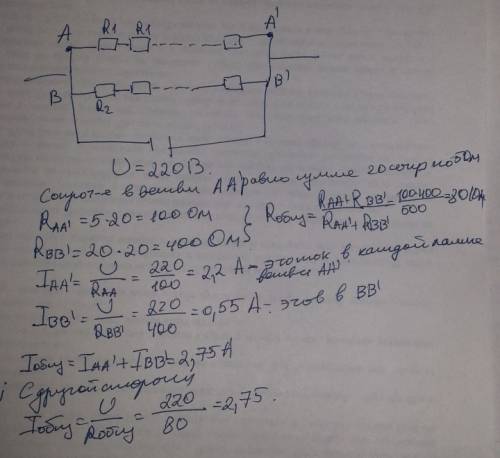 A R1 R1 A'
B R2 B'
U = 220 В.
Сопрот-е в ветви AA' равно сумме 20 сопр по 5 Ом
R_AA' = 5·20 = 100 Ом
R_BB' = 20·20 = 400 Ом } R_общ = (R_AA'·R_BB')/(R_AA'+R_BB') = (100·400)/500 = 80 (Ом)
I_AA' = U/R_AA = 220/100 = 2,2 А - это ток в каждой лампе
ветви AA'.
I_BB' = U/R_BB' = 220/400 = 0,55 А - в BB'
I_общ = I_AA' + I_BB' = 2,75 А
С другой стороны
I_общ = U/R_общ = 220/80 = 2,75.